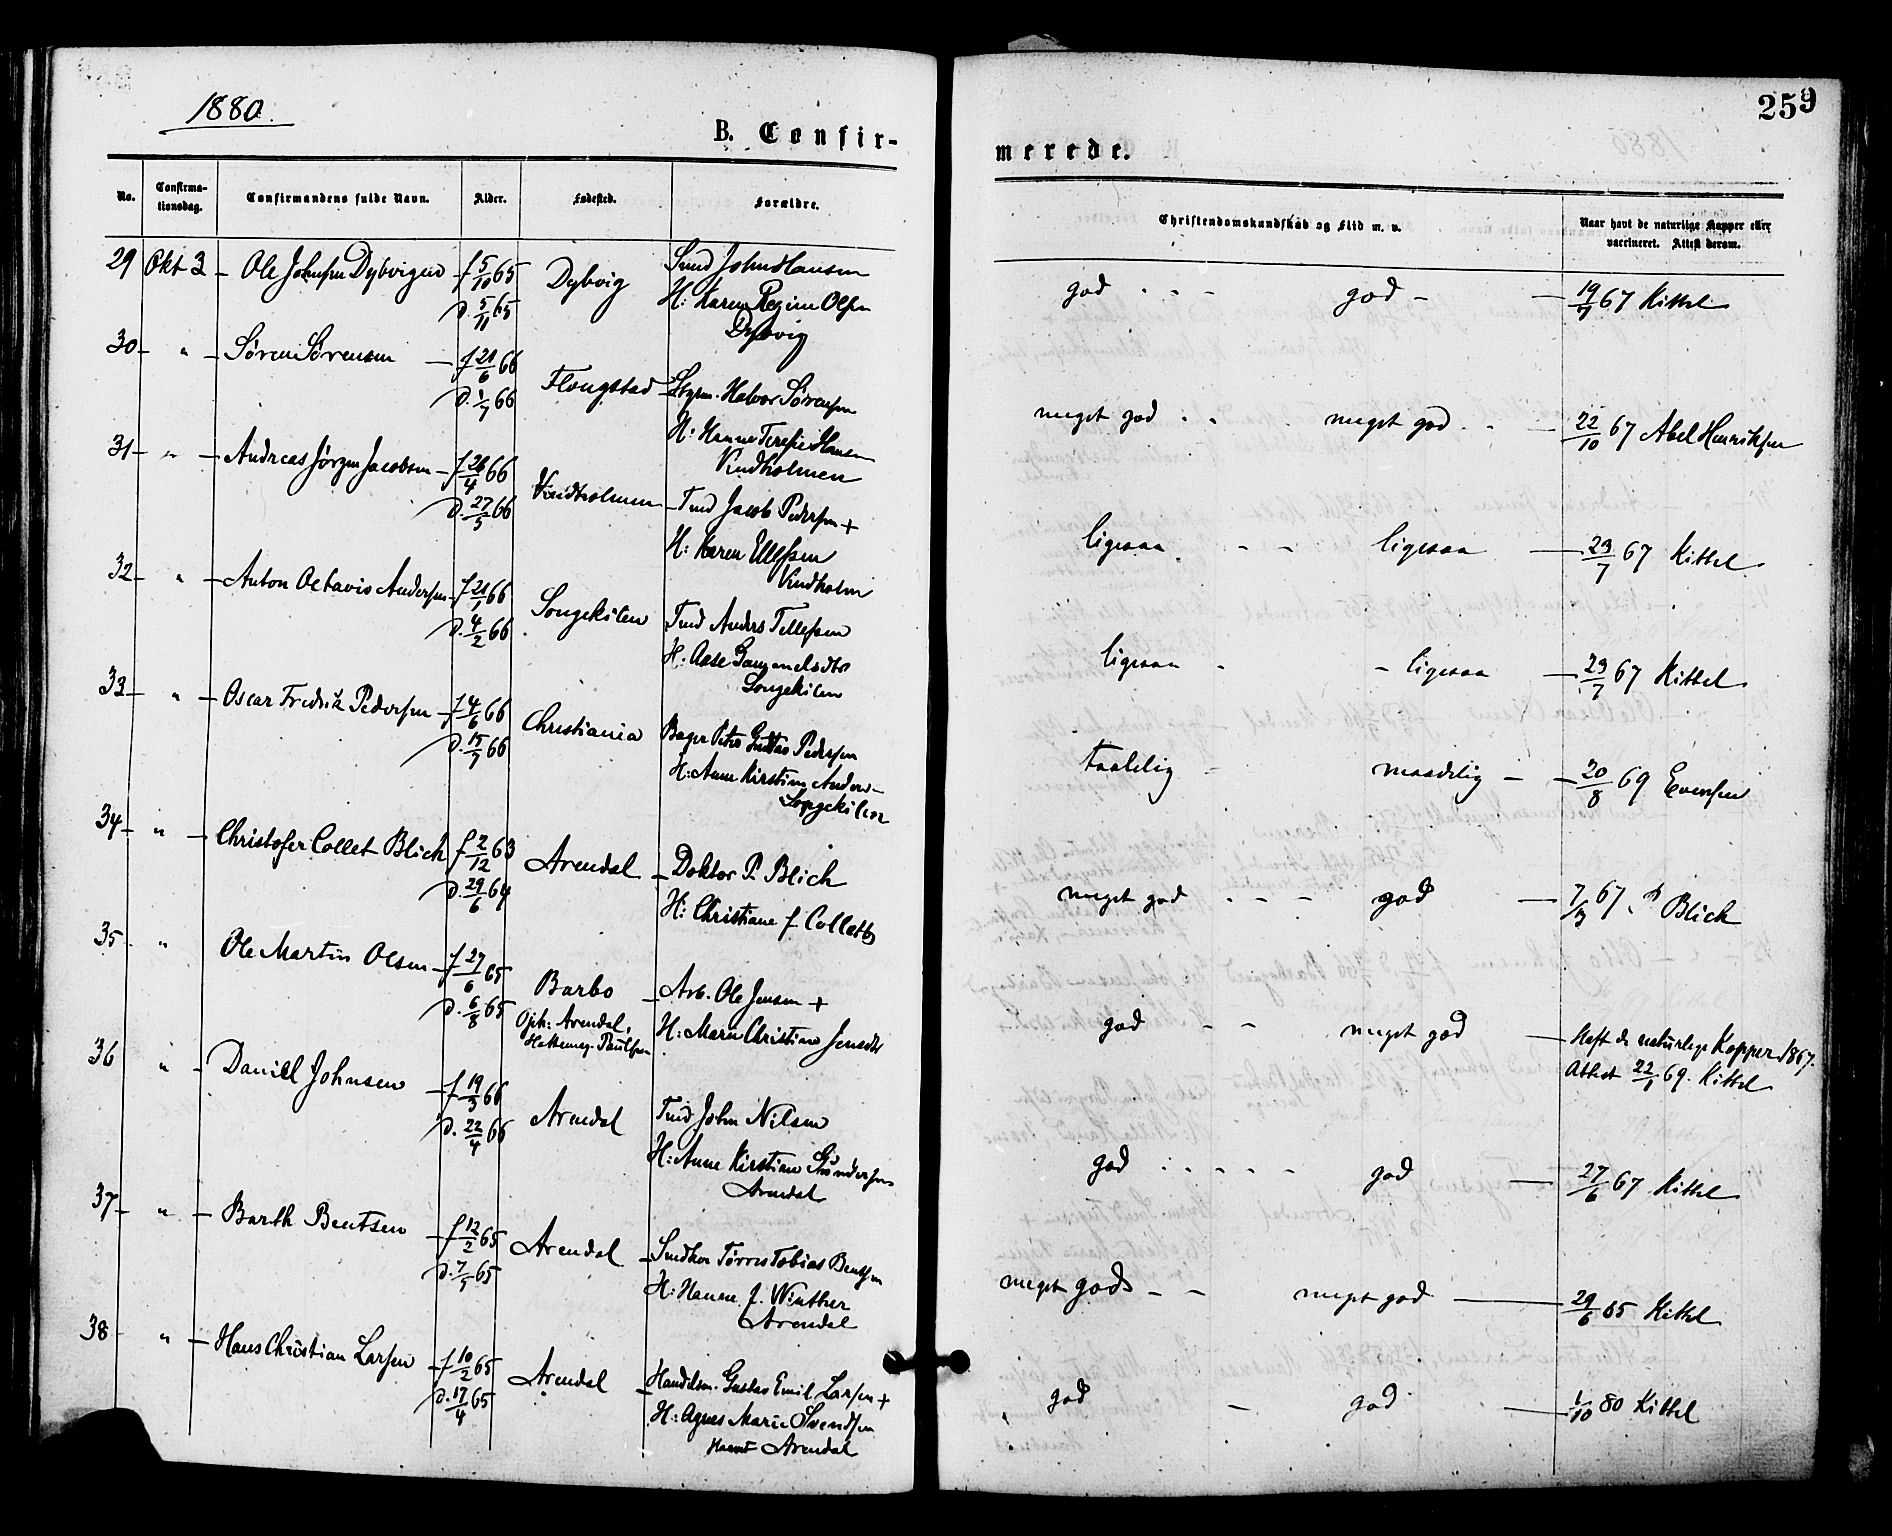 1880.
259
B. Confir-
merede.
No.
Confirma-
tionsdag.
Confirmandens fulde Navn.
Alder.
Fødested.
Forældre.
Christendomskundskab og Flid m. v.
Naar havt de naturlige Kopper eller
vaccineret. Attest derom.
29 Okt 3 – Ole Johnsen Dybvigen – f 5/10 65 Dybvig
d. 5/11 65
John Hansen
H: Karen Regine Olsen
Dybvig
god - - - god – – 19/7 67 Kittel
30 – " – Søren Sørensen – f 21/6 66 Flougstad
d. 1/7 66
Halvor Sørensen
H: Hanne Teresie Hansen
Vindholmen
meget god - - - meget god - – 22/10 67 Abel Henriksen
31 – " – Andreas Jørgen Jacobsen – f 26/4 66 Vindholmen
d. 27/5 66
– Tmd Jacob Pedersen +
H: Karen Ellefsen
Vindholm
ligesaa - - ligesaa – 23/7 67 Kittel
32 – " – Anton Octavio Andersen – f 21/1 66 Songekilen
d. 4/2 66
Tmd Anders Tellefsen
H: Aase Gammelsdtr
Songekilen
ligesaa - - ligesaa – 23/7 67 Kittel
33 – " – Oscar Fredrik Pedersen – f 4/6 66 Christiania
d. 15/7 66
Bager Peter Gustav Pedersen
H: Anne Kirstine Anders –
Songekilen
taalelig - maadelig – – 20/8 69 Evensen
34 – " – Christofer Collet Blich f 2/12 63 Arendal
d. 29/6 64
– Doktor P. Blich
H: Christiane f. Collett
meget god - - - god – 7/3 67 P Blich
35 " Ole Martin Olsen – f 27/6 65 Barbo
d. 6/8 65
Oph: Arendal,
– Arb. Ole Jensen +
H: Maren Christine Jensdtr
god - - meget god – Haft de naturlige Kopper 1867.
Attest 22/1 69. Kittel
36 " – Daniel Johnsen – f 19/3 66 Arendal
d. 22/4 66
Tmd John Nilsen
H: Anne Kirstine Gundersen
Arendal
god - - - - god – 27/6 67 Kittel
37 – " – Barth Bentsen – f 12/2 65 Arendal
d. 7/5 65
– Tørres Tobias Bentsen
H: Hanne f. Winther
Arendal
meget gods – - meget god – 29/6 65 Kittel
38 " – Hans Christian Larsen – f 10/2 65 Arendal
d. 17/4 65
– Handelsm. Gustav Emil Larsen +
H: Agnes Marie Svendsen
Arendal
god – god – 1/10 80 Kittel